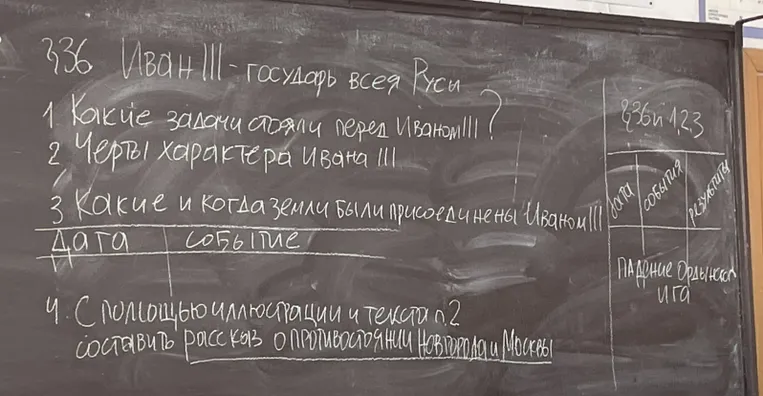 §36 Иван III - государь всея Руси
1 Какие задачи стояли перед Иваном III ?
2 Черты характера Ивана III
3 Какие и когда земли были присоединены Иваном III
Дата событие
4. С помощью иллюстрации и текста п2
составить рассказ о противостоянии Новгорода и Москвы
§36 п 1,2,3
Дата события результаты
Падение Ордынског
ига